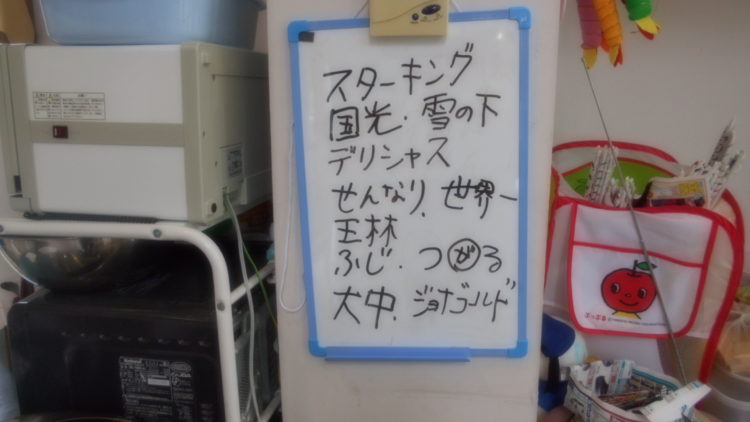 スターキング
国光.雪の下
デリシャス
せんなり.世界一
王林
ふじ.つがる
大中.ジョナゴールド